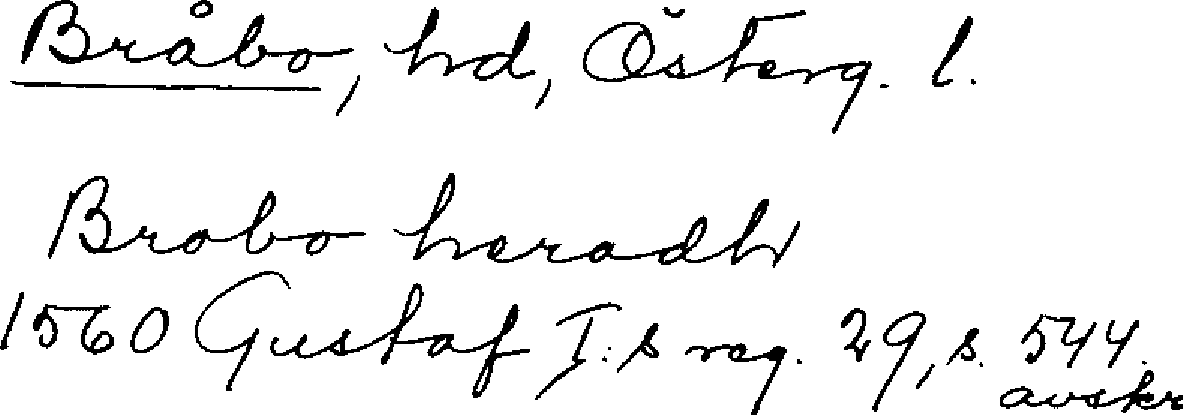 Bråbo, hd, Österg. l.
Brobo heradh
1560 Gustaf I:s reg. 29, s. 544.
avskr